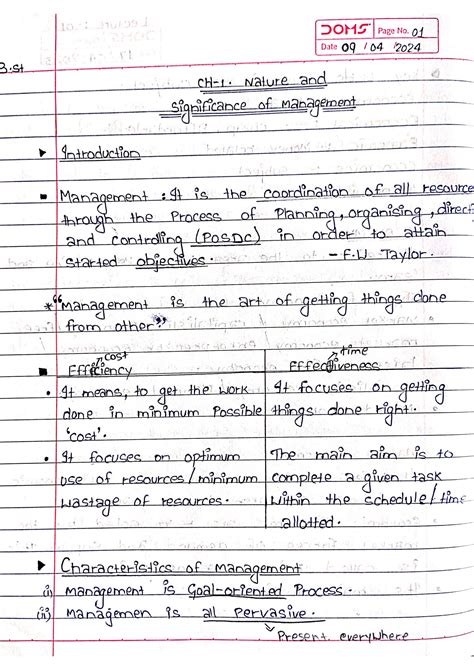 DOMS Page No. 01
Date 09 / 04 / 2024
B.st
CH-1. Nature and
Significance of Management
▶ Introduction
▪ Management : It is the coordination of all resource
through the Process of Planning, organising, direct
and controlling (POSDC) in order to attain
started objectives. - F.W. Taylor.
* "Management is the art of getting things done
from other"
cost time
▪ Efficiency Effectiveness
• It means, to get the work It focuses on getting
done in minimum Possible things done right.
'cost'.
• It focuses on optimum The main aim is to
use of resources/minimum complete a given task
wastage of resources. within the schedule/time
allotted.
▶ Characteristics of Management
(i) Management is Goal-oriented Process.
(ii) Managemen is all Pervasive.
Present everywhere